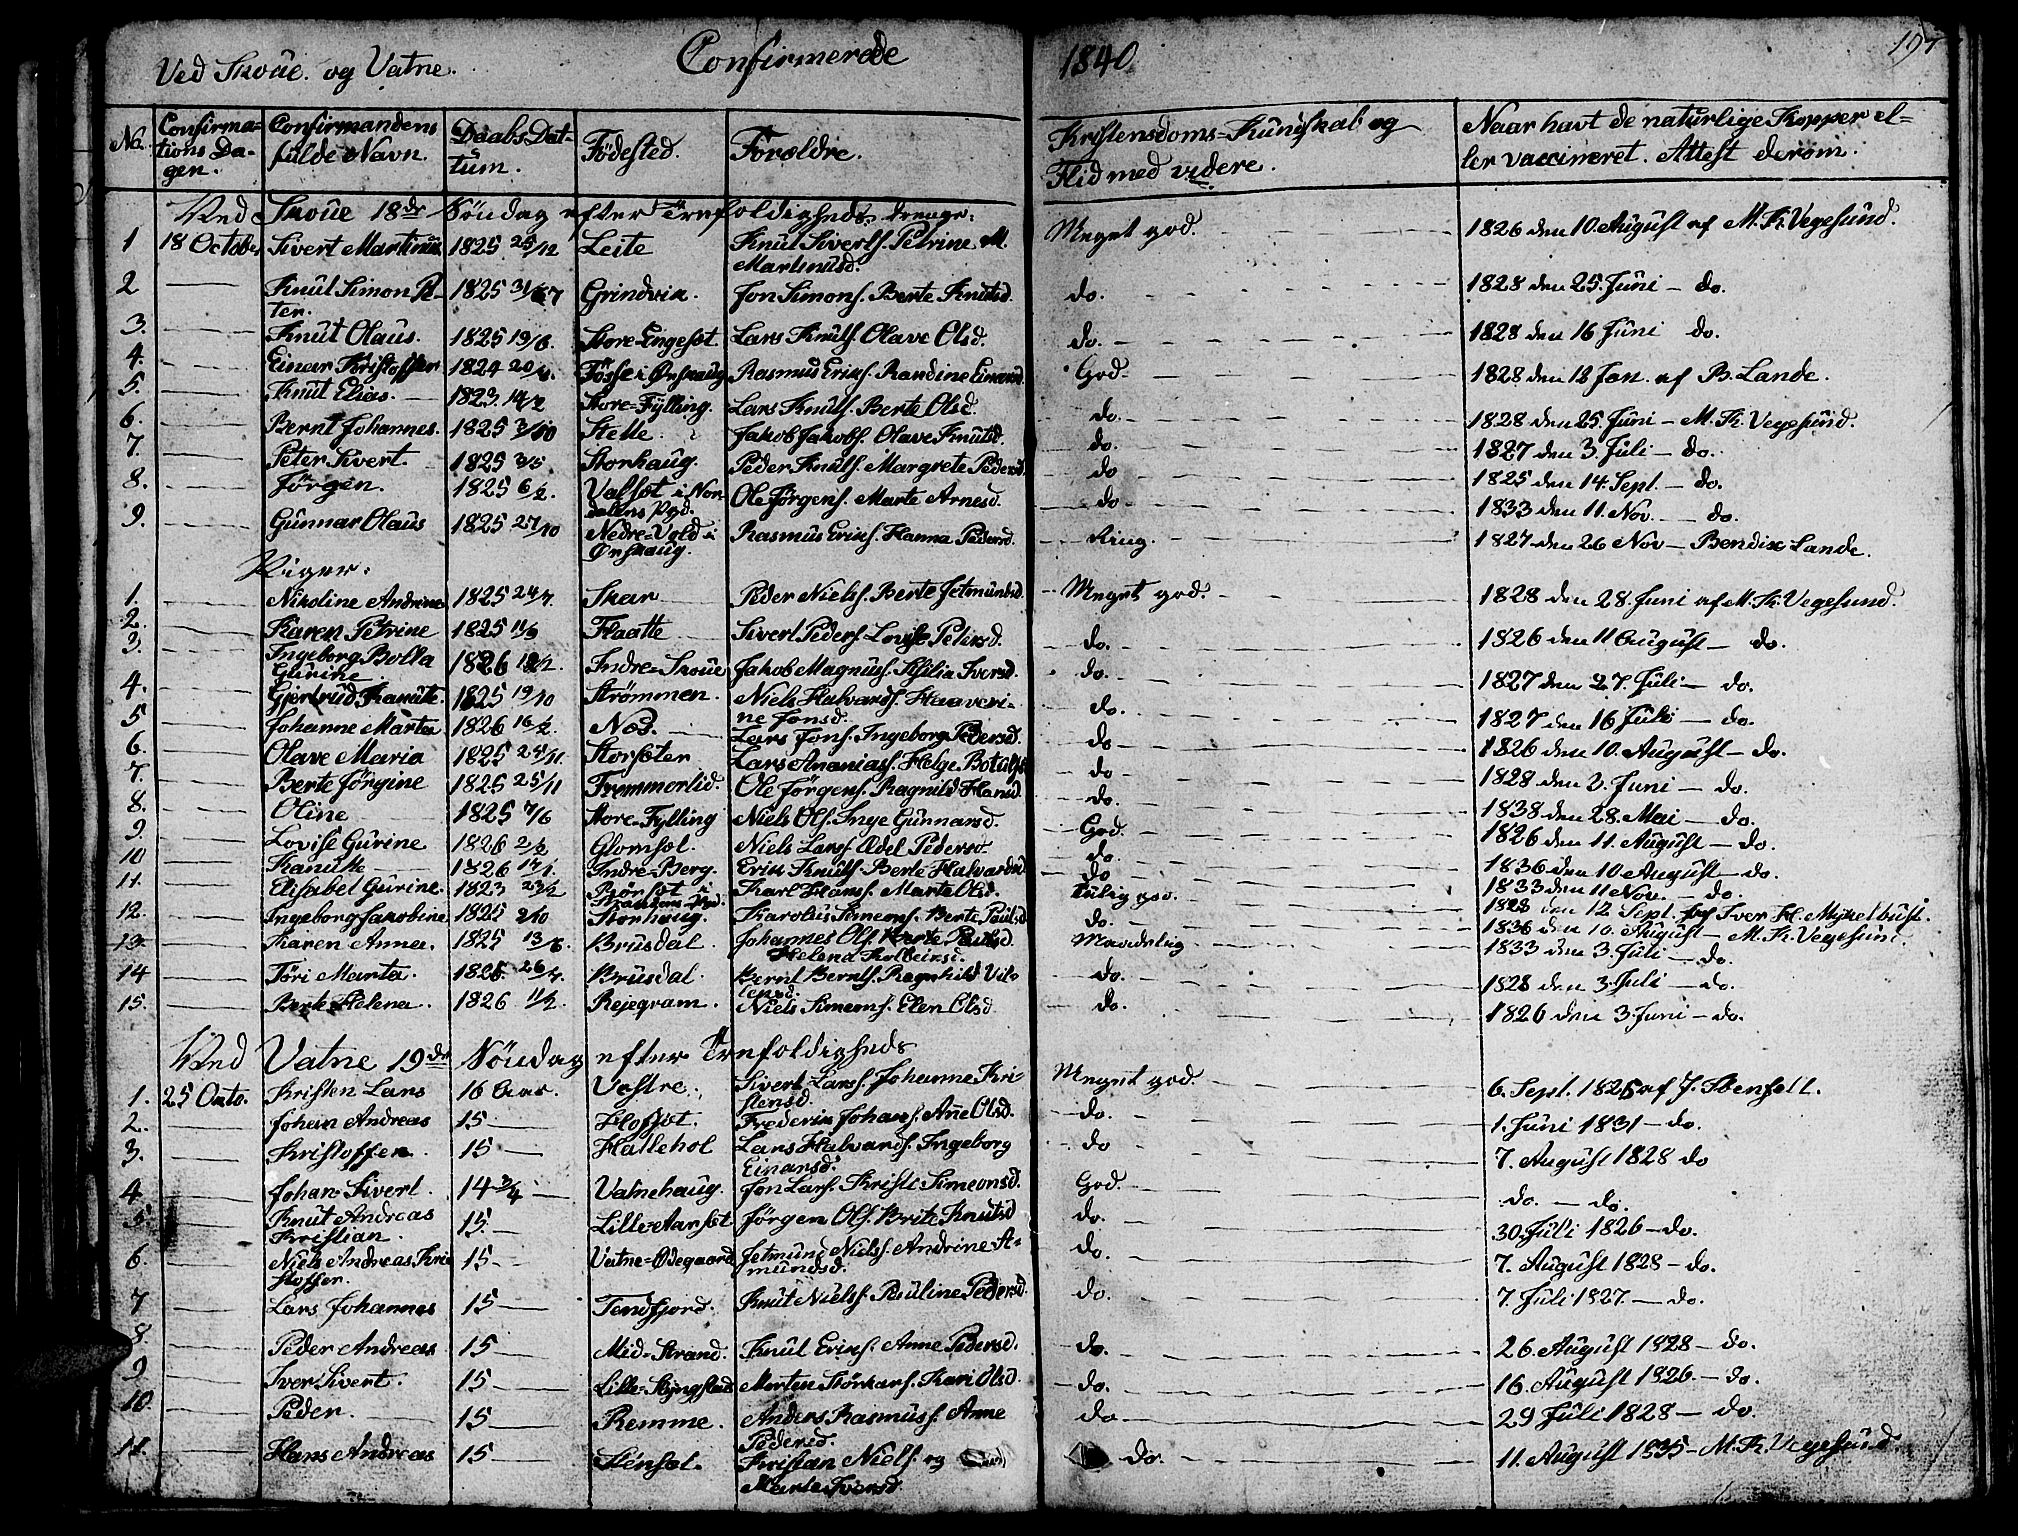 Ved Skoue og Vatne. Confirmerede 1840 197
No. Confirma- Confirmandens Daabs Dat- Födested. Forældre. Kristensdoms-Kundskab og Naar havt de naturlige Kopper el-
tions Da- fulde Navn. tum. Flid med videre. ler vaccineret. Attest derom.
gen.
Ved Skoue 18de Söndag efter Trefoldigheds drenge:
1 18 October Sivert Martinus 1825 25/12 Leite Knut Siverts. Petrine M. Meget god. 1826 den 10. August af M. K. Vegesund.
Martinusd.
2 Knut Simon Pe- 1825 31/7 Grindvik. Jon Simons. Berte Knutsd. do. 1828 den 25. Juni - do.
ter.
3. Knut Olaus. 1825 19/6. Store-Engeset. Lars Knuts. Olave Olsd. do. 1828 den 16 Juni do.
4. Einar Kristoffer 1824 20/ Fosse i Ørskaug Rasmus Eriks. Randine Einarsd. God. 1828 den 18 Jan. af B. Lande.
5. Knut Elias. 1823. 14/2 Store-Fylling. Lars Knuts. Berte Olsd. do. 1828 den 25. Juni - M. K. Vegesund.
6. Bernt Johannes. 1825 3/10 Stette. Jakob Jakobs. Olave Knutsd. do. 1827 den 3. Juli - do.
7. Peter Sivert. 1825 3/5 Storhaug. Peder Knuts. Margrete Pedersd. do 1825 den 14. Sept. - do.
8. Jørgen. 1825 6/2. Valset i Nor- Ole Jørgens. Marte Arnesd. do 1833 den 11. Nov. - do.
dalens Pgd.
9. Gunnar Olaus 1825 27/10 Nedre-Vold i Rasmus Eriks. Hanna Pedersd. Ring. 1827 den 26 Nov - Bendix Lande.
Ørskaug.
Piger:
1. Nikoline Andrine 1825 24/7. Skar Peder Niels. Berte Jetmundsd. Meget god. 1828 den 28. Juni af M. K. Vegesund.
2. Karen Petrine 1825 11/9 Flaatte Sivert Peders. Lovise Petersd. do. 1826 den 11 August - do.
3. Ingeborg Bolla 1826 12/2. Indre-Skoue Jakob Magnus. Silia Iversd. do. 1827 den 27. Juli - do.
Gurine
4. Gjertrud Kanute. 1825 19/10 Strömmen. Niels Halvards. Haaveri- do. 1827 den 16 Juli - do.
ne Jonsd.
5 Johanne Marta 1826 16/2. Nos. Lars Jons. Ingeborg Pedersd. do 1826 den 10. August - do.
6. Olave Maria 1825 25/11. Storseter Lars Ananias. Helge Botolfs do 1828 den 2. Juni - do.
7. Berte Jørgine 1825 25/11 Fremmerlid. Ole Jørgens. Ragnild Hansd. do. 1838 den 28. Mai - do.
8. Oline 1825 7/6 Store-Fylling Niels Ols. Inge Gunnarsd. God. 1826 den 11. August - do.
9. Lovise Gurine 1826 2/2 Glomset. Niels Lars. Edel Pedersd do. 1836 den 10 August - do.
10 Kanutte 1826 14/1. Indre-Berg. Erik Knuts. Berte Halvardsd do 1833 den 11 Nov. - do.
11. Elisabet Gurine. 1823 23/2 Börset i Karl Hans. Marte Olsd. Tulig god. 1828 den 12 Sept. af Iver H. Myklebust.
12. Ingeborg Jakobine 1825 2/10 Storhaug. Karolus Simens. Berte Paulsd do. 1836 den 10. August - M. K. Vegesund.
13. Karen Anna. 1825 13/6. Brusdal. Johannes Ols. Maadelig 1833 den 3. Juli - do.
14 Töri Marta. 1825 26/7. Brusdal. Bernt Bernts. Ragnhild Vil- do. 1828 den 3. Juli - do.
lensd.
15. Berte Helena. 1826 11/2. Rejegram. Niels Simens. Elen Olsd. do. 1826 den 3. Juni - do.
Ved Vatne 19de Söndag efter Trefoldigheds
1. 25 Octo. Kristen Lars 16 Aar. Vastre. Sivert Lars. Johanne Kri- Meget god. 6. Sept. 1826 af J. Stensett.
stensd.
2. Johan Andreas 15 Hofset. Frederik Johans. Ane Olsd. do. 1. Juni 1831 - do.
3. Kristoffer. 15 Hallehol Lars Halvards. Ingeborg do 7. August 1828 do
Einarsd.
4 Johan Sivert. 14 3/4 Vatnehaug. Jon Lars. Kristi Simeonsd. God. do. - do.
5 Knut Andreas 15. Lille-Aarset Jørgen Ols. Brite Knutsd do. 30. Juli 1826 - do.
Kristian.
6. Niels Andreas Kri 15 Vatne-Ødegaard Jetmund Niels. Andrine A- do. 7. August 1828 - do.
stoffer. mundsd.
7 Lars Johannes 15 Tennfjord. Knut Niels. Pauline Pedersd. do. 7. Juli 1827. - do.
8 Peder Andreas 15 Mid-Strand. Knut Eriks. Anne Pedersd. do. 26. August 1828 - do.
9 Iver Sivert. 15 Lille-Slyngstad Morten Störkars. Kari Olsd. do. 16. August 1826 - do.
10 Peder. 15 Remme. Anders Rasmus. Anne do 29 Juli 1828 - do.
Pedersd.
11. Hans Andreas 15 Stenset. Kristian Niels. og do. 11. August 1835 - M. K. Vegesund.
Marte Iversd